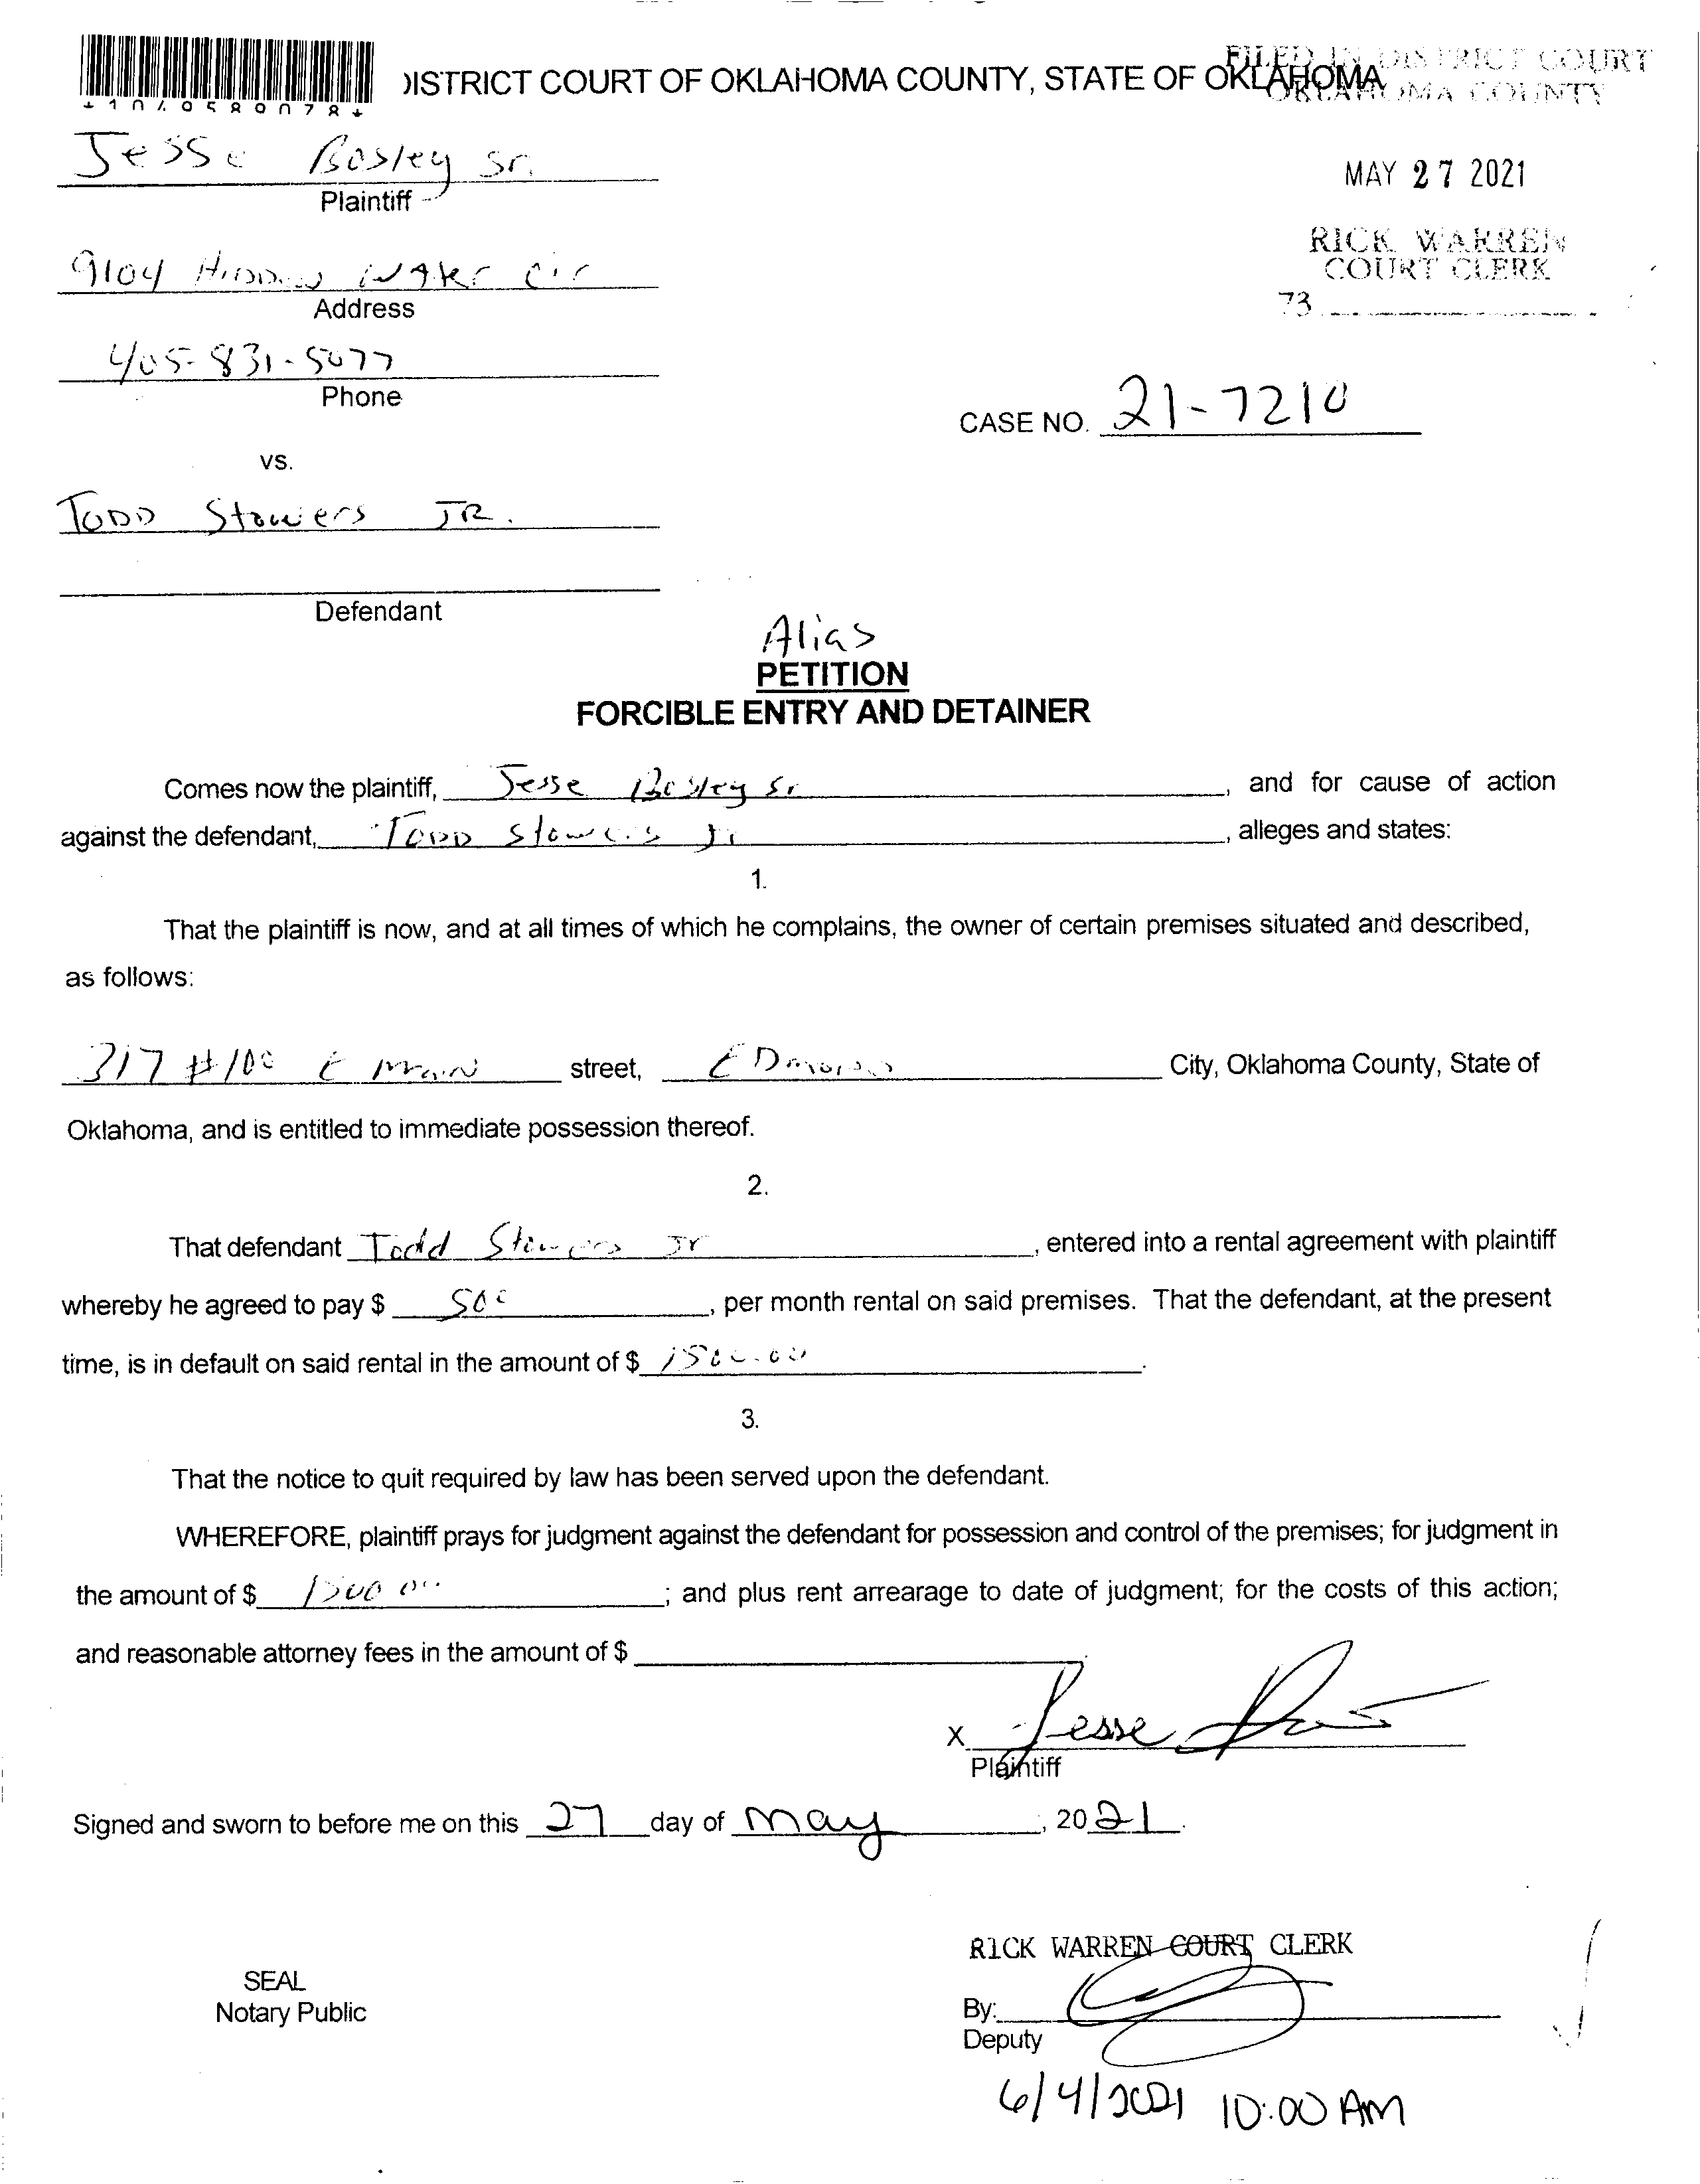 FILED IN DISTRICT COURT
OKLAHOMA COUNTY
DISTRICT COURT OF OKLAHOMA COUNTY, STATE OF OKLAHOMA
Jesse Bosley Sr.
Plaintiff
MAY 27 2021
RICK WARREN
COURT CLERK
73
9104 Hidden Water Cir
Address
405-831-5077
Phone
CASE NO. 21-7210
vs.
TODD Stowers JR.
Defendant
Alias
PETITION
FORCIBLE ENTRY AND DETAINER
Comes now the plaintiff, Jesse Bosley Sr, and for cause of action
against the defendant, TODD Stowers Jr, alleges and states:
1.
That the plaintiff is now, and at all times of which he complains, the owner of certain premises situated and described,
as follows:
317 #100 E Main street, EDmond City, Oklahoma County, State of
Oklahoma, and is entitled to immediate possession thereof.
2.
That defendant Todd Stowers Jr, entered into a rental agreement with plaintiff
whereby he agreed to pay $ 500, per month rental on said premises. That the defendant, at the present
time, is in default on said rental in the amount of $ 1500.00.
3.
That the notice to quit required by law has been served upon the defendant.
WHEREFORE, plaintiff prays for judgment against the defendant for possession and control of the premises; for judgment in
the amount of $ 1500 00; and plus rent arrearage to date of judgment; for the costs of this action;
and reasonable attorney fees in the amount of $
X Jesse
Plaintiff
Signed and sworn to before me on this 27 day of May, 2021.
RICK WARREN COURT CLERK
SEAL
Notary Public
By:
Deputy
6/4/2021 10:00 AM